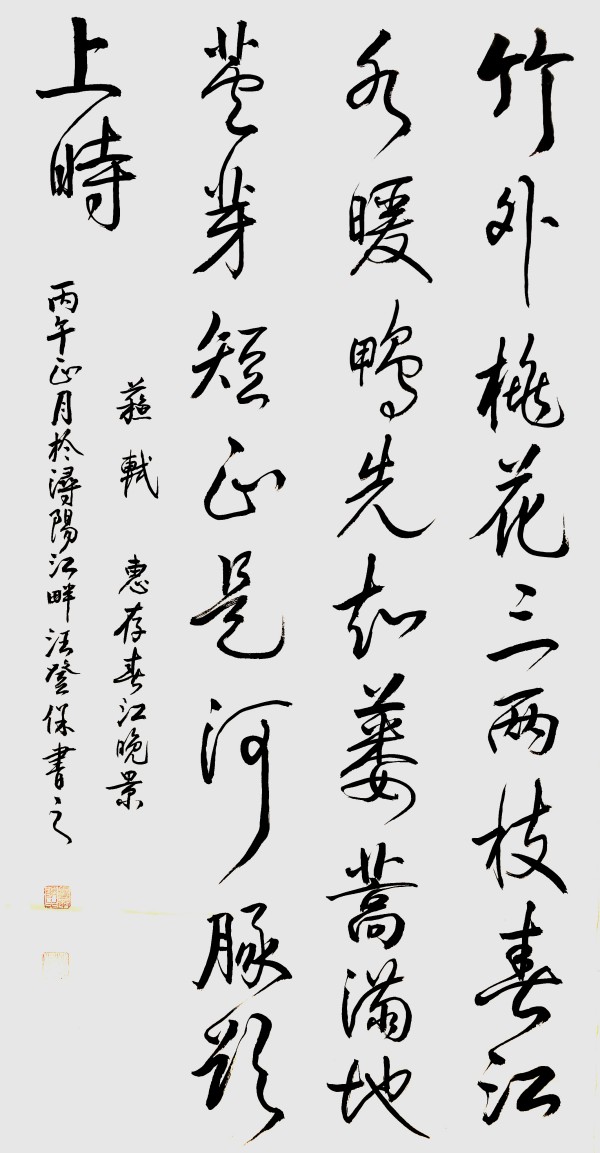 竹外桃花三两枝春江
水暖鴨先知蔞蒿滿地
蘆芽短正是河豚欲
上時
蘇軾 惠存春江晚景
丙午正月於潯陽江畔汪登保書之